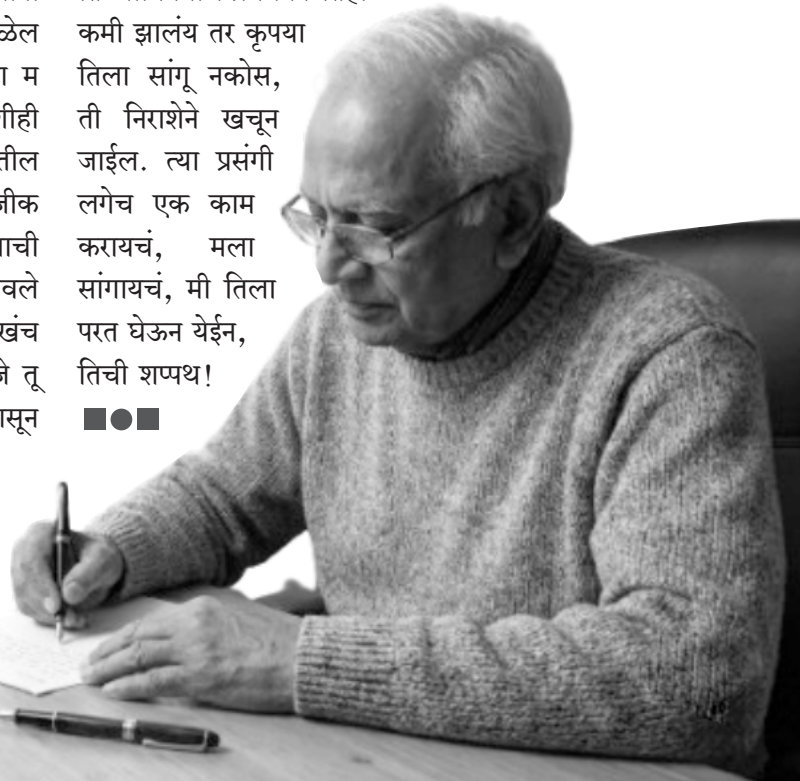 ळेल
म
तील
जीक
वले
जे तू
ासून
कमी झालंय तर कृपया
तिला सांगू नकोस,
ती निराशेने खचून
जाईल. त्या प्रसंगी
लगेच एक काम
करायचं, मला
सांगायचं, मी तिला
परत घेऊन येईन,
तिची शप्पथ!